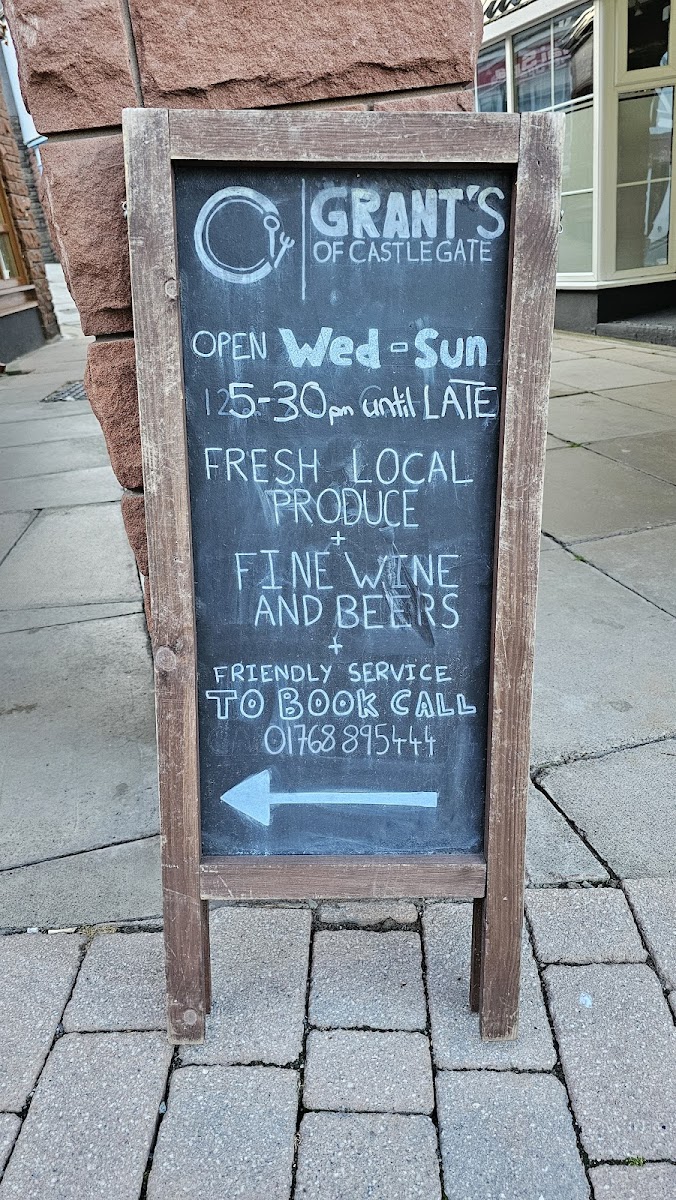 GRANT'S
OF CASTLEGATE
OPEN Wed-Sun
5-30pm until LATE
FRESH LOCAL
PRODUCE
+
FINE WINE
AND BEERS
+
FRIENDLY SERVICE
TO BOOK CALL
01768 895444